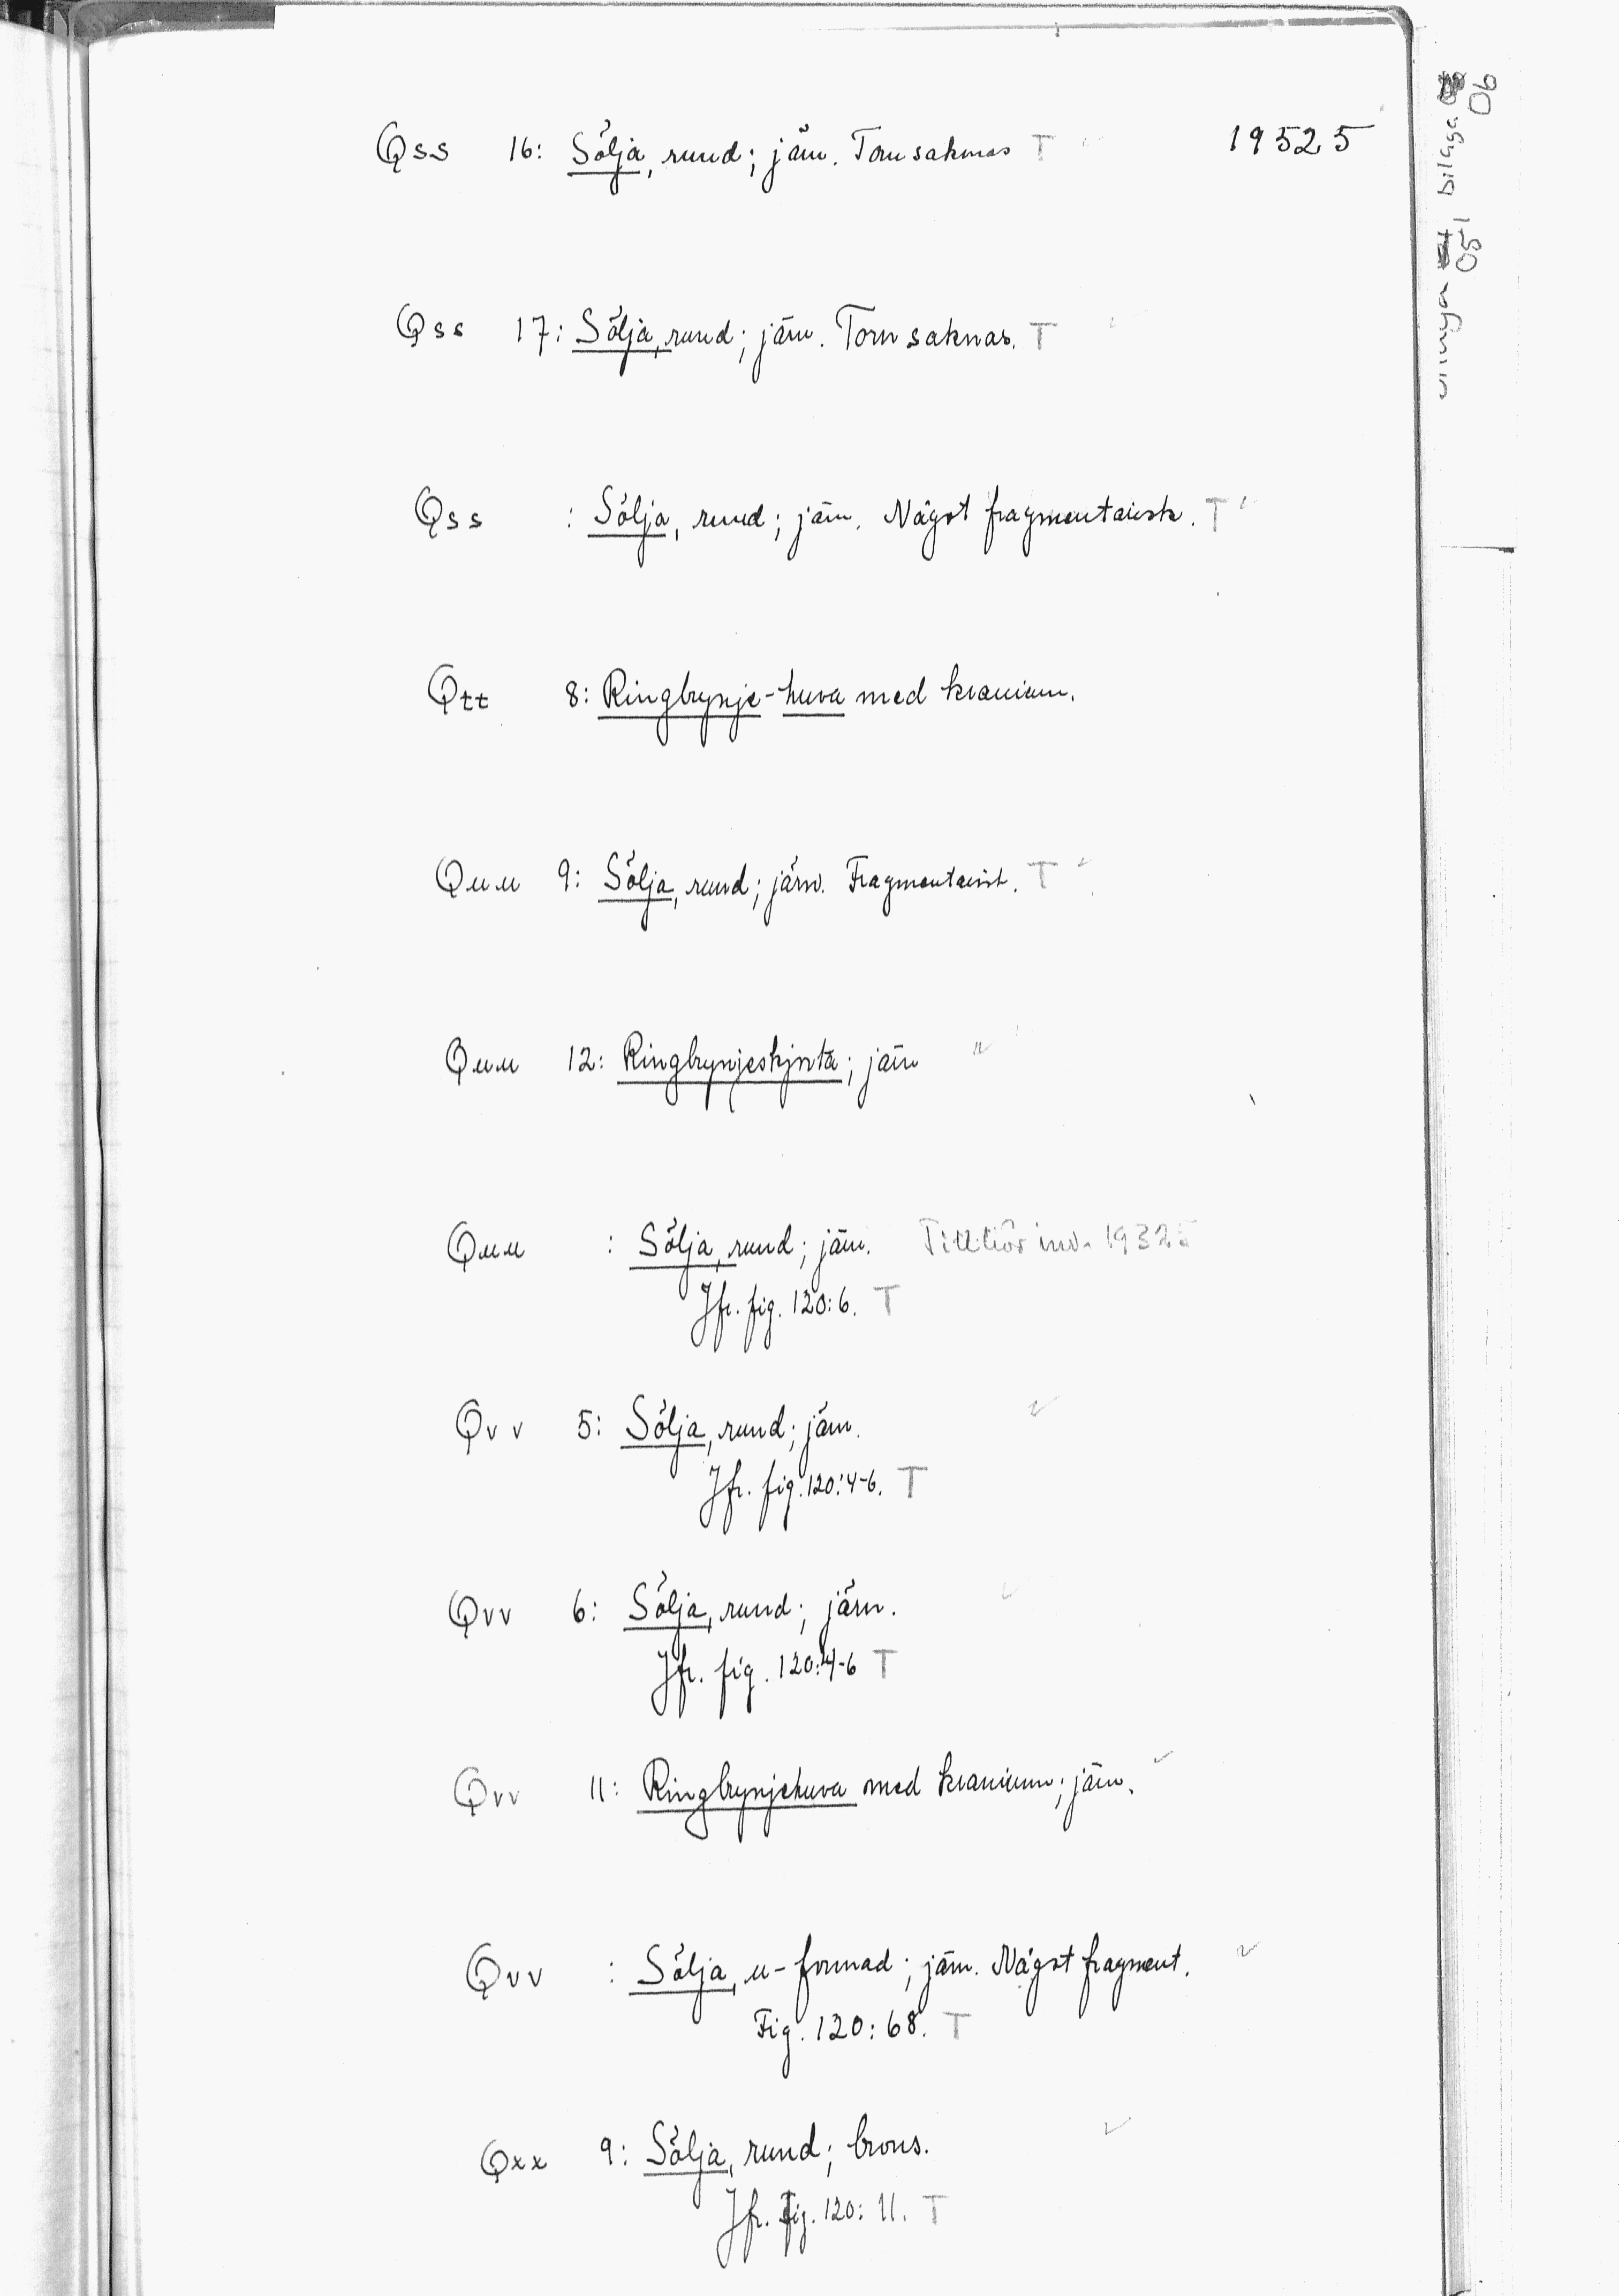 19525
Qss 16: Sölja, rund; järn. Torn saknas T
Qss 17: Sölja, rund; järn. Torn saknas. T
Qss : Sölja, rund; järn. Något fragmentarisk. T
Qtt 8: Ringbrynje-huva med kranium.
Quu 9: Sölja, rund; järn. Fragmentarisk. T
Quu 12: Ringbrynjeskjorta; järn
Quu : Sölja, rund; järn. Tillhör inv. 19325
Jfr. fig. 120:6. T
Qvv 5: Sölja, rund; järn.
Jfr. fig. 120:4-6. T
Qvv 6: Sölja, rund; järn.
Jfr. fig. 120:4-6 T
Qvv 11: Ringbrynjehuva med kranium; järn.
Qvv : Sölja, u-formad; järn. Något fragment.
Fig. 120:68. T
Qxx 9: Sölja, rund; brons.
Jfr. Fig. 120:11. T
bilaga
06
051